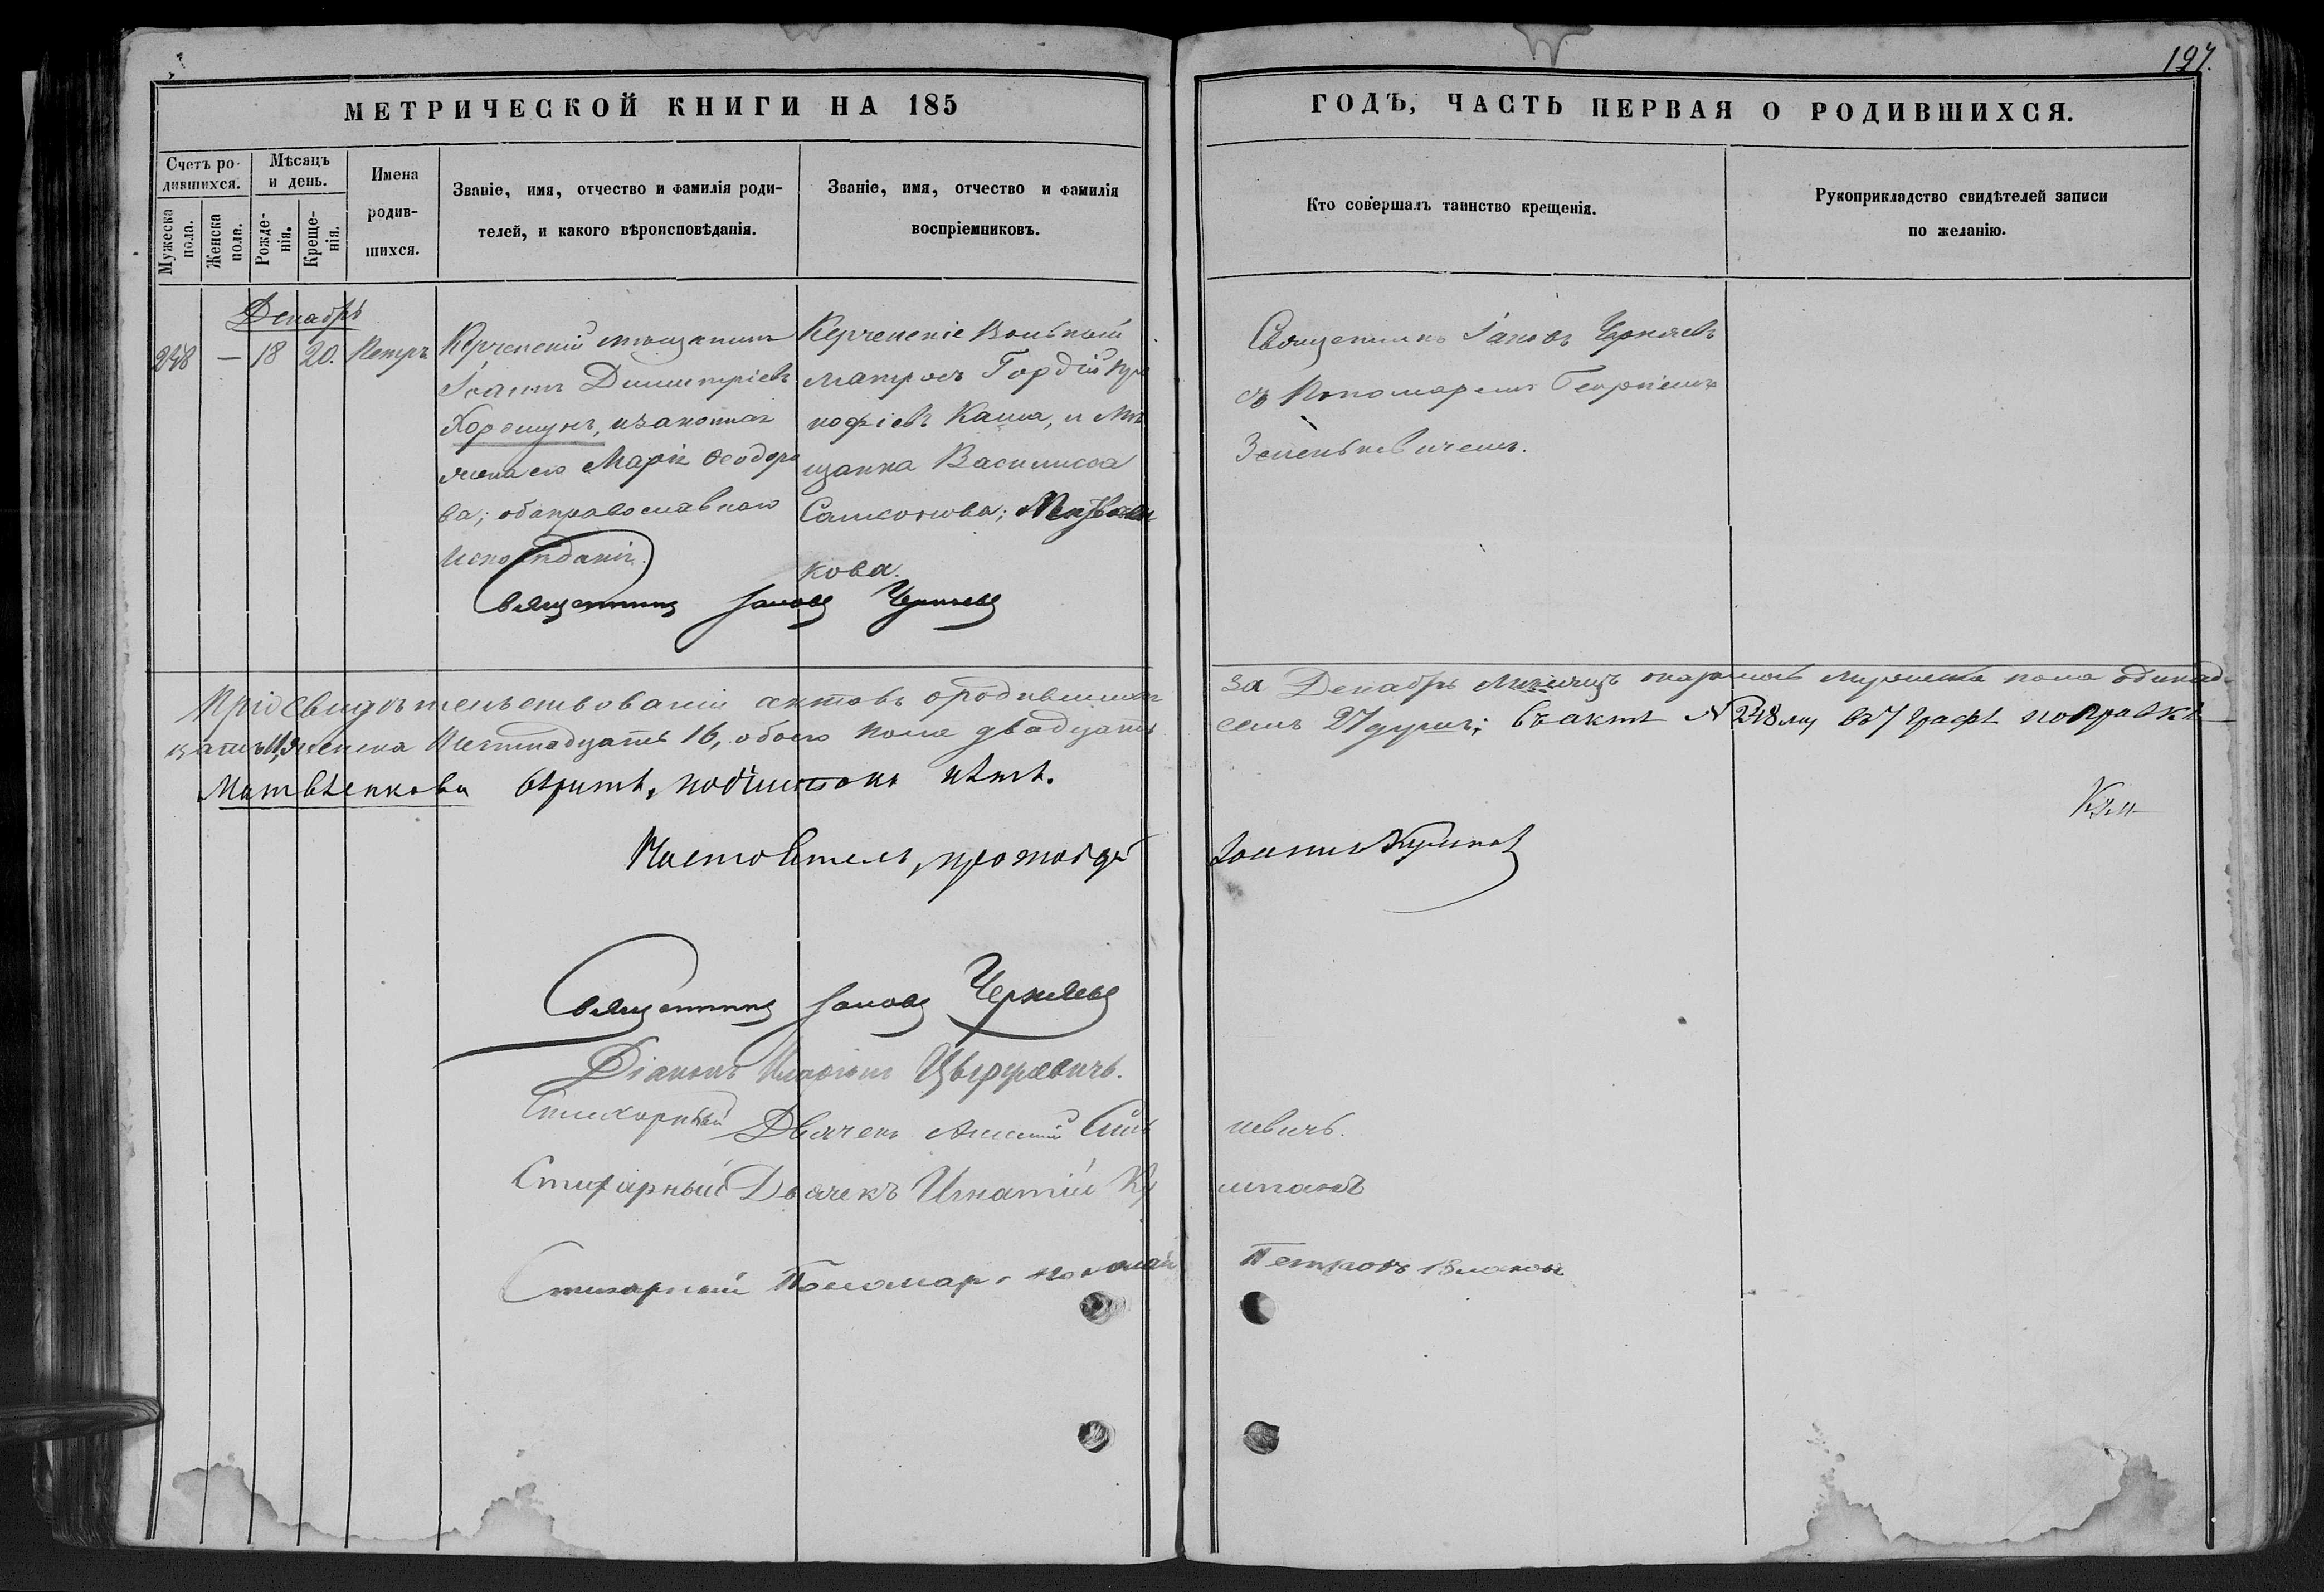 127.
МЕТРИЧЕСКОЙ КНИГИ НА 185
ГОДЪ, ЧАСТЬ ПЕРВАЯ О РОДИВШИХСЯ.
Счетъ ро-
дившихся.
Мужеска пола.
Женска пола.
Мѣсяцъ
и день.
Рожде-
нія.
Креще-
нія.
Имена
родив-
шихся.
Званіе, имя, отчество и фамилія роди-
телей, и какого вѣроисповѣданія.
Званіе, имя, отчество и фамилія
воспріемниковъ.
Кто совершалъ таинство крещенія.
Рукоприкладство свидѣтелей записи
по желанію.
Декабрь
248 — 18 20. Петръ
Керченскій мѣщанинъ
Іоаннъ Димитріевъ
Хорошунъ, и законная
жена его Марія Ѳеодоро
ва; оба православнаго
исповѣданія.
Керченскіе Вольный
матросъ Гордій Про
кофіевъ Каша, и Мѣ
щанка Василисса
кова.
Священникъ Іаковъ Черняевъ
Священникъ Іаковъ Черняевъ
съ Пономаремъ Георгіемъ
Зенькевичемъ.
При свидѣтельствованіи актовъ о родившихся
за Декабрь Мѣсяцъ оказалось мужеска пола одинад-
цать 11, женска шестнадцать 16, обоего пола двадцать
семь 27 душъ; въ актѣ № 248 въ 7 графѣ поправкѣ
Матвѣенкова вѣрить, подчистокъ нѣтъ.
Настоятель, протоіерей
Іоаннъ Кумпанъ
Священникъ Іаковъ Черняевъ
Діаконъ
Стихарный Дьячекъ Алексій
Стихарный Дьячекъ Игнатій Ку
мпанъ
Стихарный Пономарь Николай
Петровъ